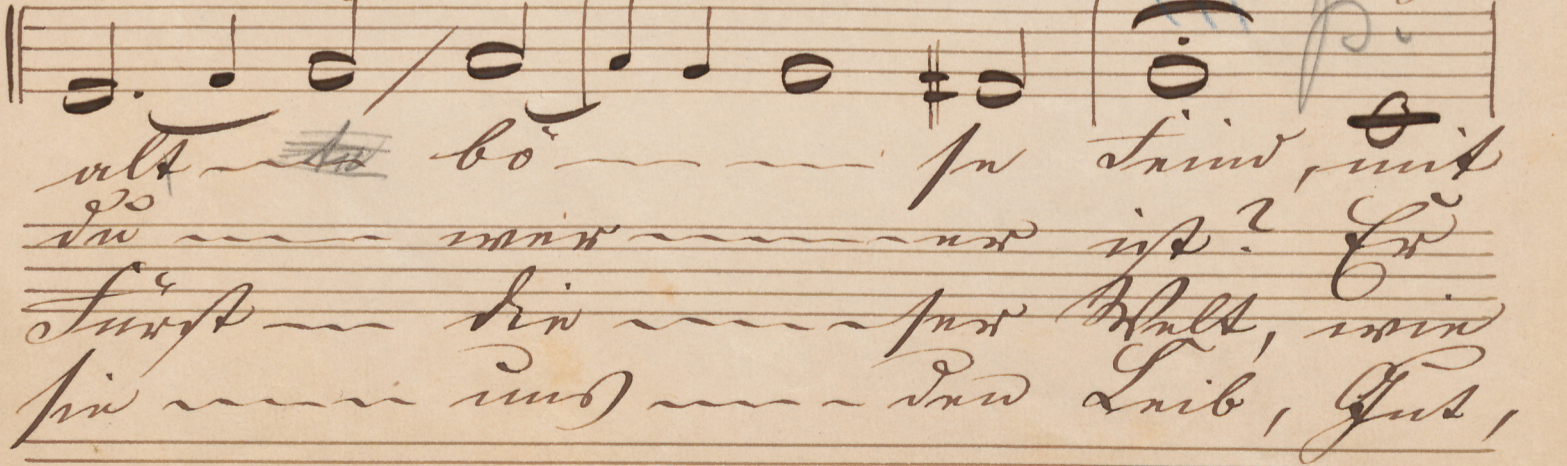 alt - - bö - - - se Feind, mit
du - - - wer - - - - er ist? Er
Fürst - - die - - - - ser Welt, wie
sie - - - uns - - - den Leib, Gut,